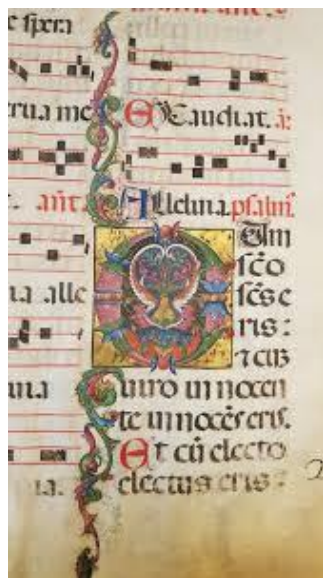 e spera
rua me
añt.
ia alle
uia
ia.
Exaudiat. a:
Alleluia. psalm̃.
CUm
scõ
scs̃ e
ris:
⁊ cuʒ
uiro innocen
te innocẽs eris.
Et cũ electo
electus eris: